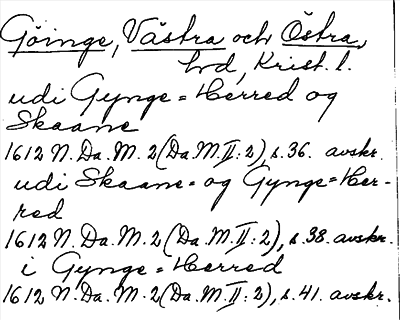 Göinge, Västra och Östra,
hd, Krist. l.
udi Gynge=Herred og
Skaane
1612 N. Da. M. 2 (Da. M. II: 2), s. 36. avskr.
udi Skaane= og Gynge=Her-
red
1612 N. Da. M. 2 (Da. M. II: 2), s. 38. avskr.
i Gynge=Herred
1612 N. Da. M. 2 (Da. M. II: 2), s. 41. avskr.